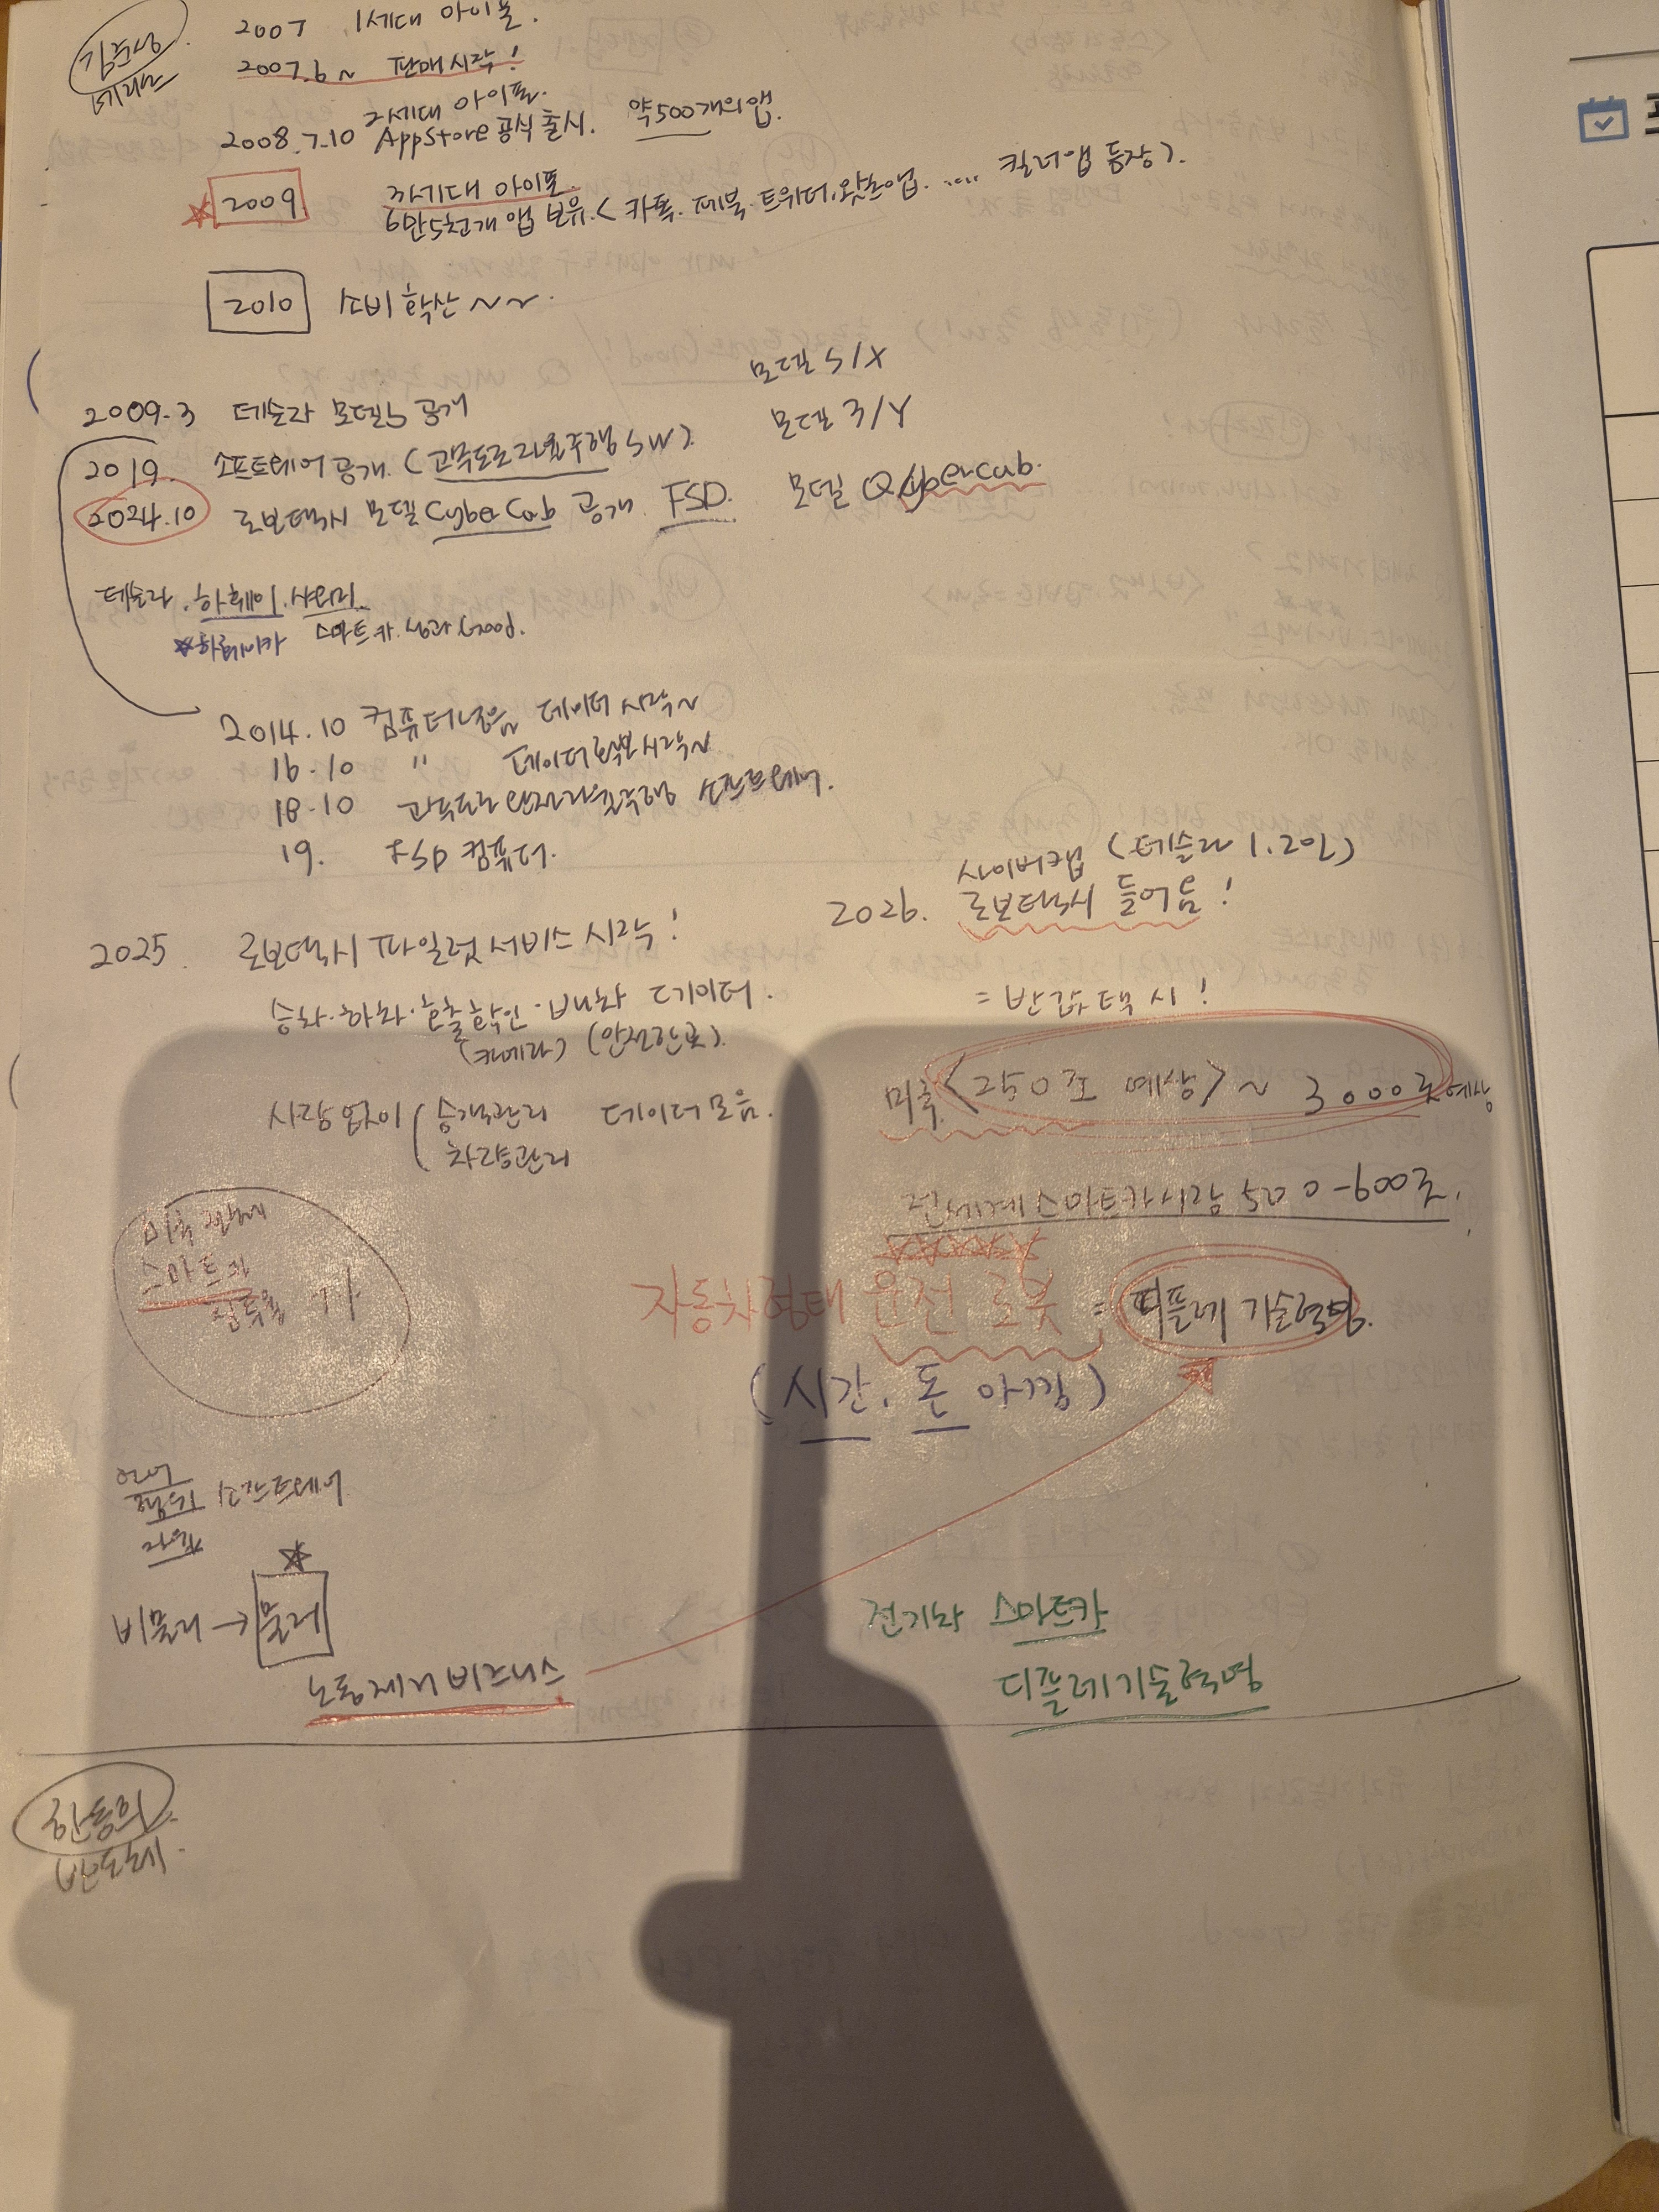 2007 1세대 아이폰.
2007.6~ 판매시작!
2세대 아이폰.
2008.7.10 AppStore 공식 출시. 약500개의앱.
2009 3세대 아이폰.
6만5천개 앱 보유.<카톡.페북.트위터.왓츠앱. .... 킬러앱 등장>.
2010 소비 확산 ~~.
모델 S/X
2009.3 테슬라 모델S 공개
모델 3/Y
2019. 소프트웨어 공개. (고속도로자율주행 SW).
2024.10 로보택시 모델 CyberCab 공개. FSD.
모델 Q Cybercab.
테슬라. 화웨이. 샤오미.
스마트카. 성과 Good.
2014.10 컴퓨터넣음 데이터 시작~
16.10 " 데이터확보시작~
18.10 고속도로 자율주행 소프트웨어.
19. FSD 컴퓨터.
사이버캡 (테슬라 1.2억)
2026. 로보택시 들어옴!
2025. 로보택시 파일럿서비스 시작!
승하.하차.호출확인. 데이터.
(카메라)
= 반값택시!
미국 <250조 예상> ~ 3000조예상
사람없이 (승객관리 데이터모음.
차량관리
전세계스마트카시장 500-600조.
스마트카
자동차형태 운전 로봇 = 디플레 기술혁명.
(시간. 돈 아낌)
소프트웨어
비물리 → 물리
노동제니비즈니스
전기차 스마트카
디플레기술혁명
한동희
반도체.